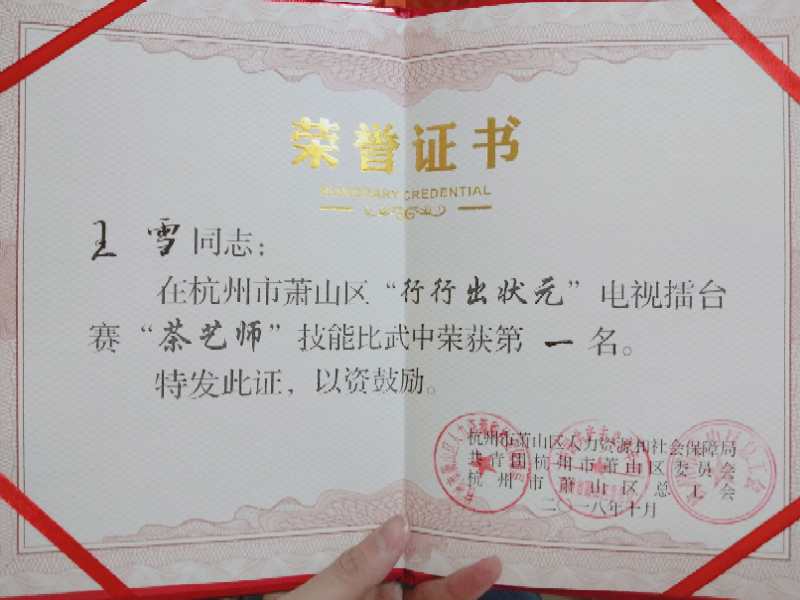 荣誉证书
HONORARY CREDENTIAL
王雪同志：
在杭州市萧山区“行行出状元”电视擂台
赛“茶艺师”技能比武中荣获第一名。
特发此证，以资鼓励。
杭州市萧山区人力资源和社会保障局
共青团杭州市萧山区委员会
杭州市萧山区总工会
二〇一八年十月